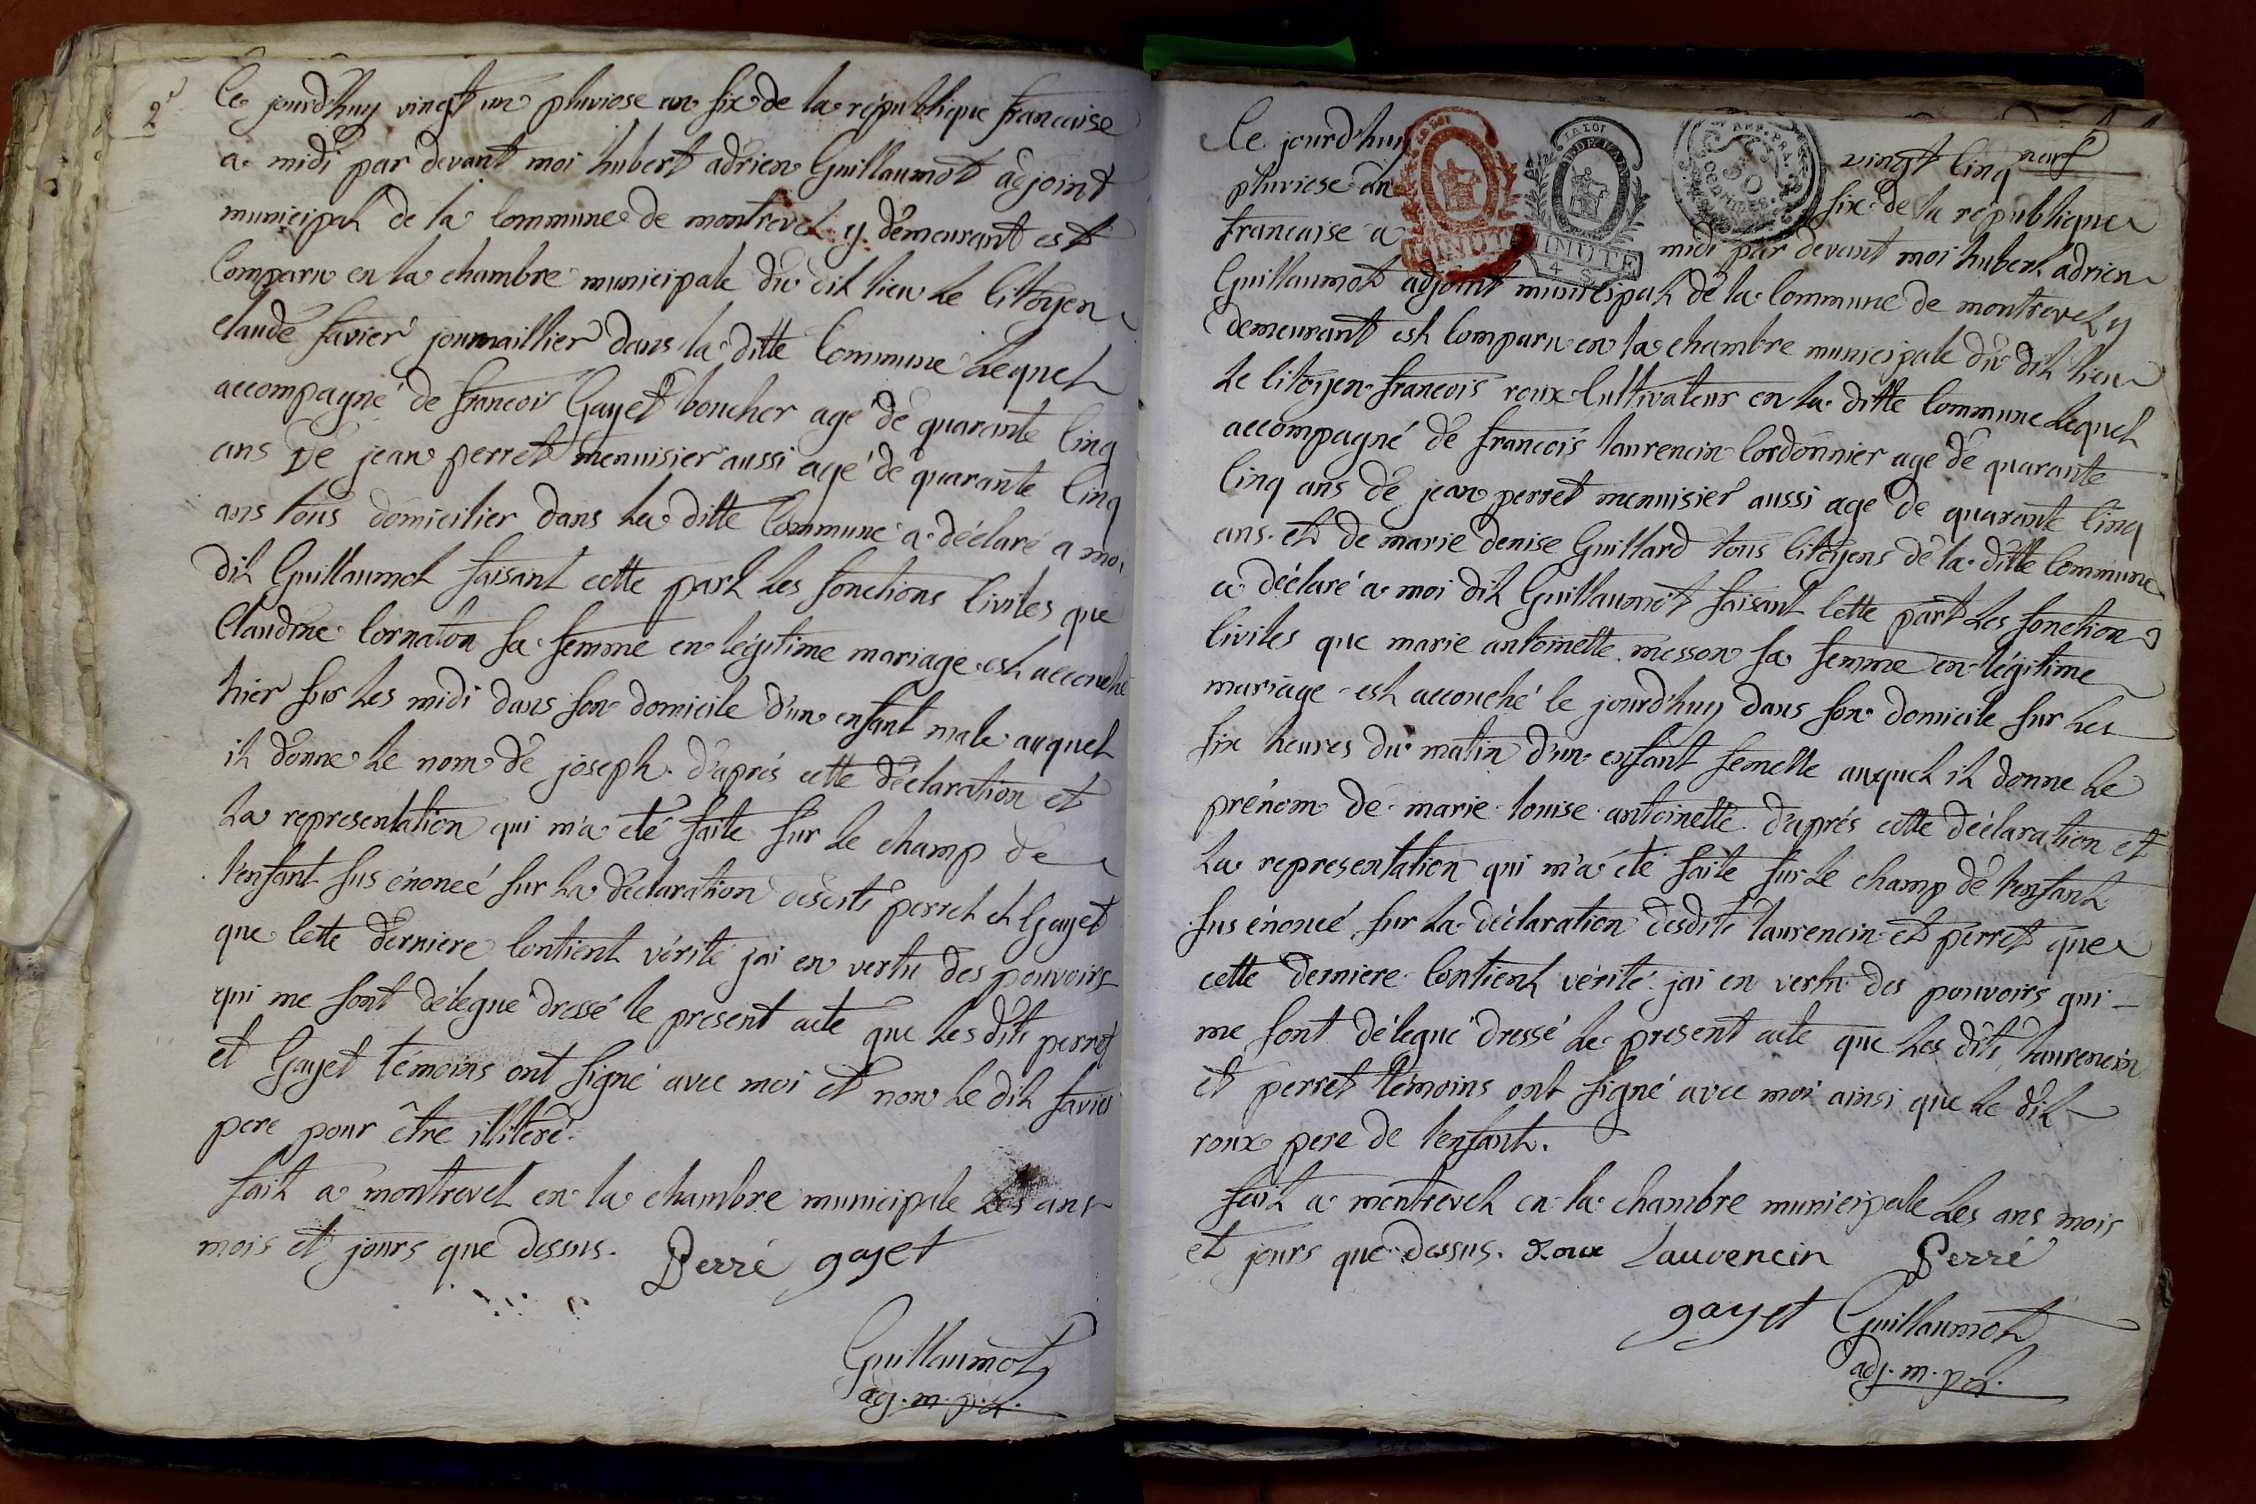 2e
Ce jourd'huy vingt un pluviose an six de la république francaise
a midi par devant moi hubert adrien Guillaumot adjoint
municipal de la Commune de montrevel y demeurant est
Comparu en la chambre municipale du dit lieu le Citoyen
claude favier journaillier dans la ditte Commune lequel
accompagné de francois Gayet boucher agé de quarante Cinq
ans De jean perret menuisier aussi agé de quarante Cinq
ans tous domicilier dans la ditte Commune a déclaré a moi
dit Guillaumot faisant cette part les fonctions Civiles que
Claudine Cornaton sa femme en légitime mariage est accouché
hier sur les midi dans son domicile d'un enfant male auquel
il donne le nom de joseph. d'aprés cette déclaration et
la representation qui m'a été faite sur le champ de
l'enfant sus énoncé sur la déclaration desdits perret et Gayet
que Cette derniere Contient vérité jai en vertu des pouvoirs
qui me sont délegué dressé le present acte que les dits perret
et Gayet témoins ont signé avec moi et non le dit favier
pere pour être illiteré.
fait a montrevel en la chambre municipale les ans
mois et jours que dessus. Perré gayet
Guillaumot
adj. m. pal.
neuf
Ce jourd'huy vingt Cinq
pluviose an six de la république
francaise a midi par devant moi hubert adrien
MINUTE MINUTE
4 S
Guillaumot adjoint municipal de la Commune de montrevel y
demeurant est Comparu en la chambre municipale du dit lieu
le Citoyen francois roux Cultivateur en la ditte Commune lequel
accompagné de francois laurencin Cordonnier age de quarante
Cinq ans de jean perret menuisier aussi age de quarante Cinq
ans. et de marie denise Guillard tous Citoyens de la ditte Commune
a déclaré a moi dit Guillaumot faisant Cette part les fonction
Civiles que marie antoinette messon sa femme en légitime
mariage est accouché le jourd'huy dans son domicile sur les
six heures du matin d'un enfant femelle auquel il donne le
prénom de marie louise antoinette d'aprés cette déclaration et
la representation qui m'a été faite sur le champ de l'enfant
sus énoncé sur la déclaration desdits laurencin et perret que
cette derniere Contient vérité jai en vertu des pouvoirs qui
me sont délegué dressé le present acte que les dits laurencin
et perret témoins ont signé avec moi ainsi que le dit
roux pere de l'enfant.
fait a montrevel en la chambre municipale les ans mois
et jours que dessus. Roux Laurencin Perré
gayet Guillaumot
adj. m. pal.